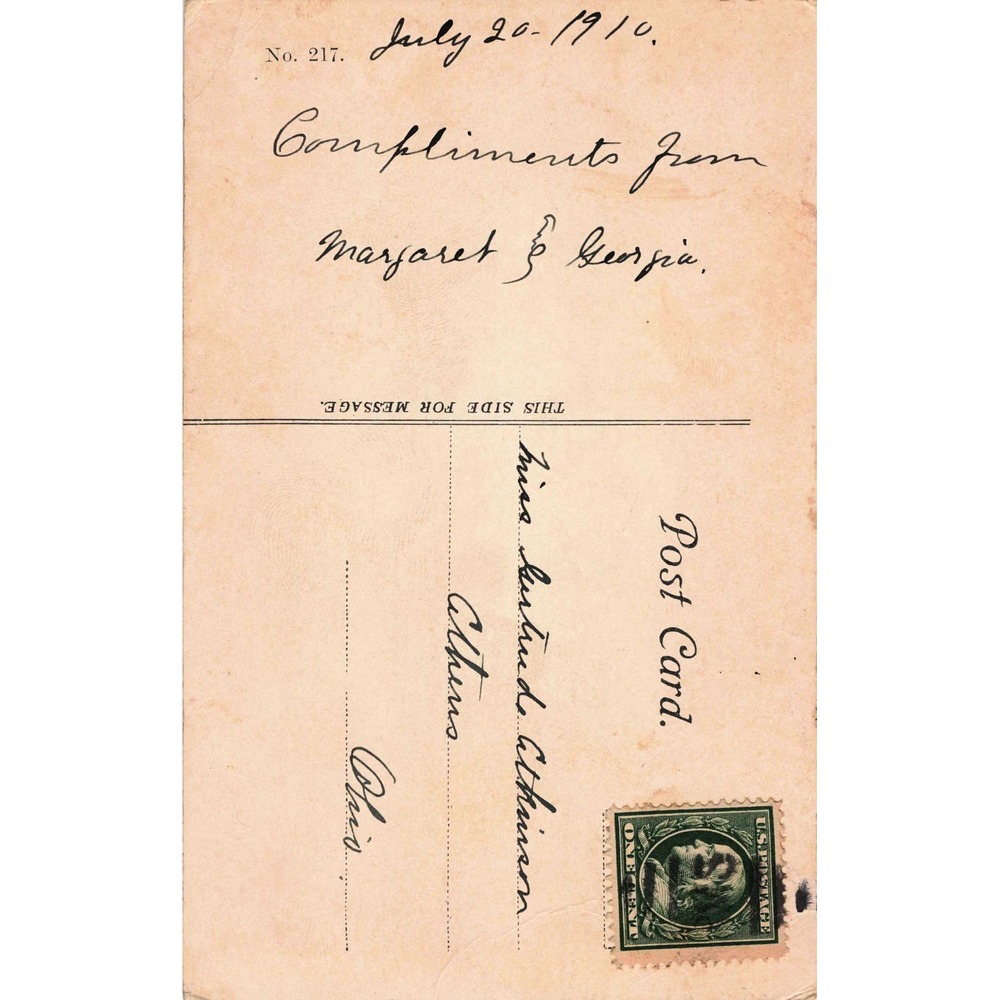 No. 217.
July 20 - 1910.
Compliments from
Margaret & Georgia.
THIS SIDE FOR MESSAGE.
Post Card.
Miss Gertrude Atkinson
Athens
Ohio
U.S. POSTAGE
ONE CENT